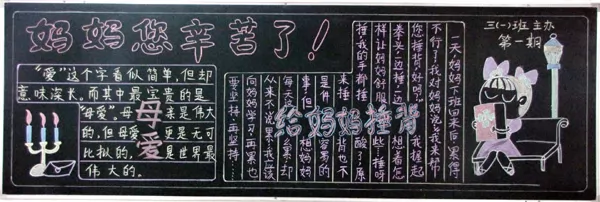 妈妈您辛苦了！
三(一)班 主办
第一期
“爱”这个字看似简单，但却
意味深长。而其中最宝贵的是
“母爱”。母亲是伟大
的，但母爱更是无可
比拟的，是世界最
伟大的。
母爱
给妈妈捶背
一天妈妈下班回来后累得
不行了！我对妈妈说：我来帮
您捶背好吗？我握起
拳头，边捶，边想着怎
样让妈妈舒服些，捶呀
捶我的手都捶酸了！原
来捶背也不
是件容易的
事，但妈妈
每天这么累却
从来不说累，我应该
向妈妈学习，再累也
要坚持，再坚持…